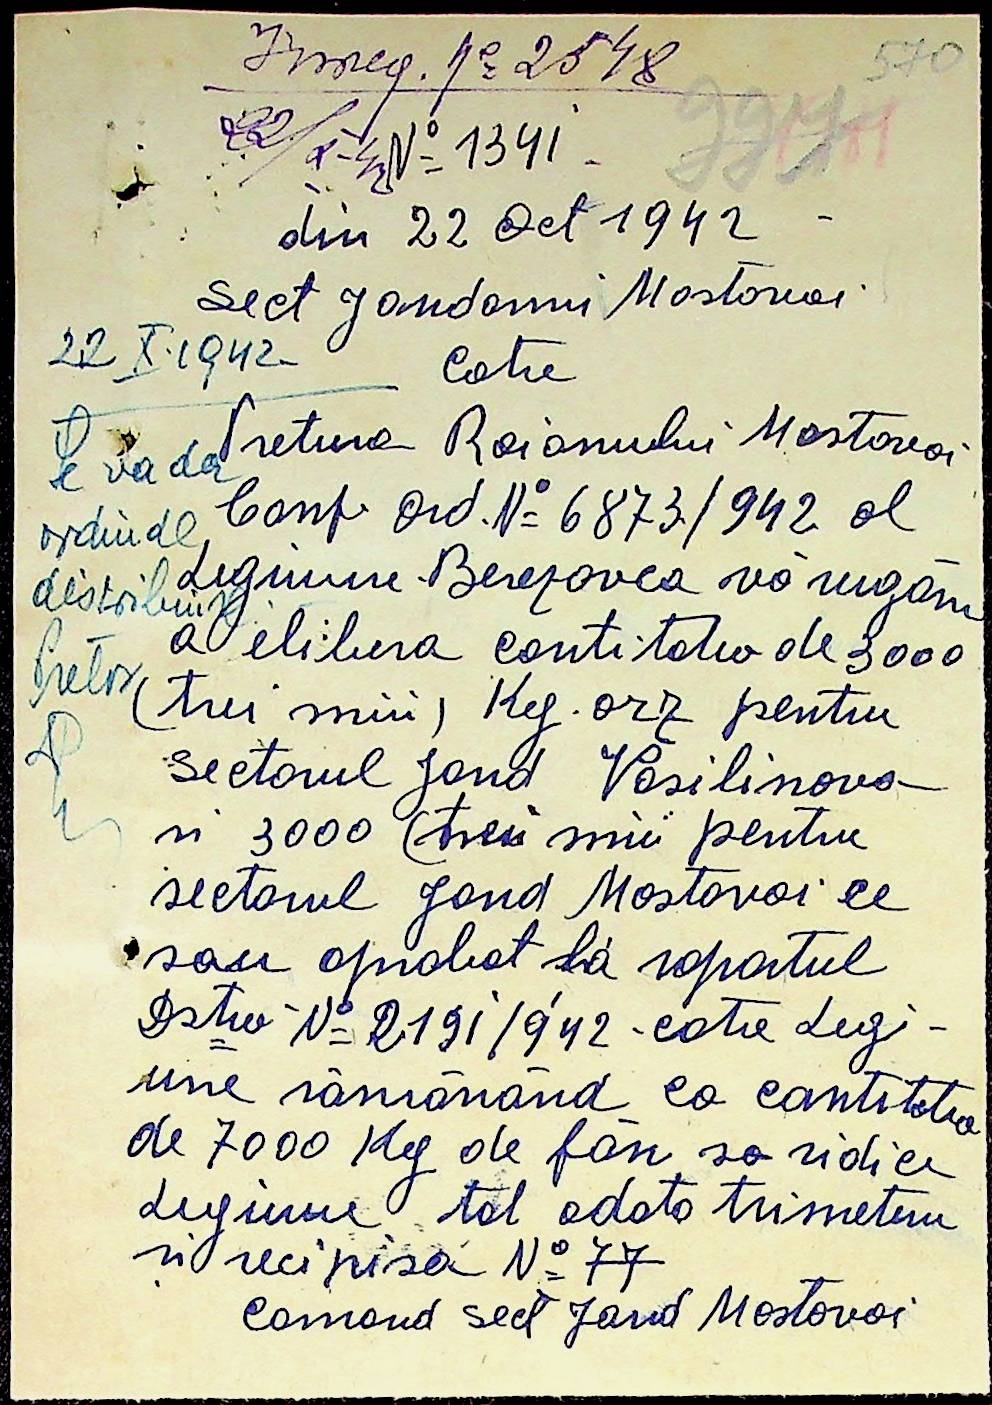 Inreg. No 2548
570
22/X-42
No 1341
din 22 Oct 1942
Sect Jandarmi Mostovoi
22 X.1942
Catre
Pretura Raionului Mostovoi
Se va da
ordin de
distribuire
Pretor
Conf. Ord. No 6873/942 al
Legiune Berezovca vă rugăm
a elibera cantitatea de 3000
(trei mii) Kg. orz pentru
Sectorul Jand Vasilinova
si 3000 (trei mii pentru
sectorul Jand Mostovoi ce
sau aprobat la raportul
Dstra No 2191/942 catre Legi-
une rămănănd ca cantitatea
de 7000 Kg de făn sa ridice
Legiune tot odata trimetem
si recipisa No 77
Comand Sect Jand Mostovoi